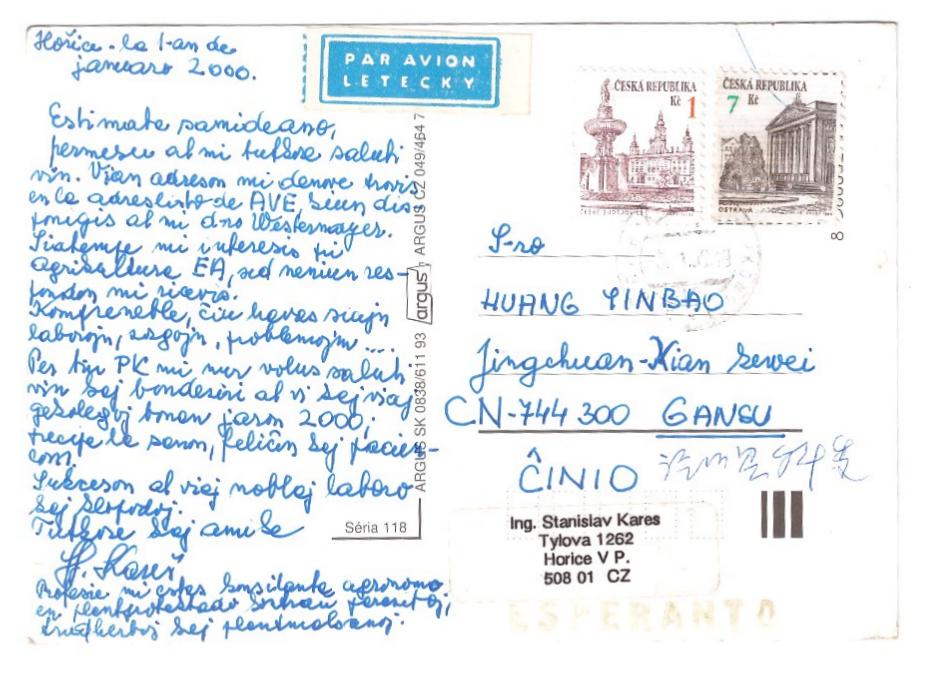 Hořice - la 1-an de
januaro 2000.
Estimata samideano,
permesu al mi tutkore saluti
vin. Vian adreson mi denove trovis
en la adreslisto de AVE, kiun dis
ponigis al mi d-ro Westermayer.
Siatempe mi interesis pri
Agrikultura EA, sed neniun res-
pondon mi ricevis.
Kompreneble, ĉiu havas siajn
laborojn, zorgojn, problemojn ...
Per tiu PK mi nur volus saluti
vin kaj bondeziri al vi kaj viaj
gekolegoj bonan jaron 2000,
precipe la sanon, feliĉon kaj pacien-
con.
Sukceson al viaj noblaj laboro
kaj klopodoj.
Tutkore kaj amike
S. Kareš
Profesie mi estas konsilanta agronomo
en plantprotektado kontraŭ parazitoj,
trudherboj kaj plantmalsanoj.
PAR AVION
LETECKY
ARGUS SK 0838/611 93 argus ARGUS CZ 049/464 7
Séria 118
ČESKÁ REPUBLIKA
Kč 1
ČESKÉ BUDĚJOVICE
ČESKÁ REPUBLIKA
7 Kč
OSTRAVA
8
S-ro
HUANG YINBAO
Jingchuan-Xian Kewei
CN-744300 GANSU
ĈINIO
Ing. Stanislav Kares
Tylova 1262
Horice V P.
508 01 CZ
ESPERANTO